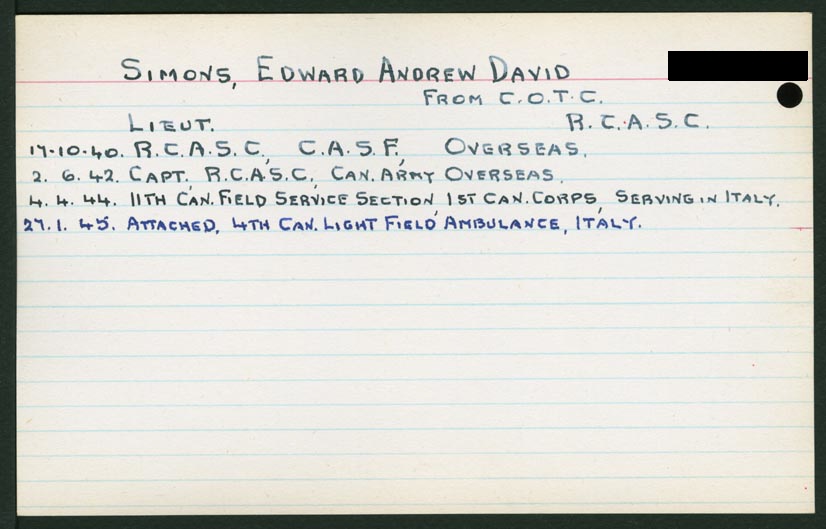 SIMONS, EDWARD ANDREW DAVID
FROM C.O.T.C.
LIEUT. R.C.A.S.C.
17.10.40. R.C.A.S.C., C.A.S.F., OVERSEAS.
2. 6. 42. CAPT. R.C.A.S.C., CAN. ARMY OVERSEAS.
4. 4. 44. 11TH CAN. FIELD SERVICE SECTION, 1ST CAN. CORPS, SERVING IN ITALY.
27. 1. 45. ATTACHED, 4TH CAN. LIGHT FIELD AMBULANCE, ITALY.